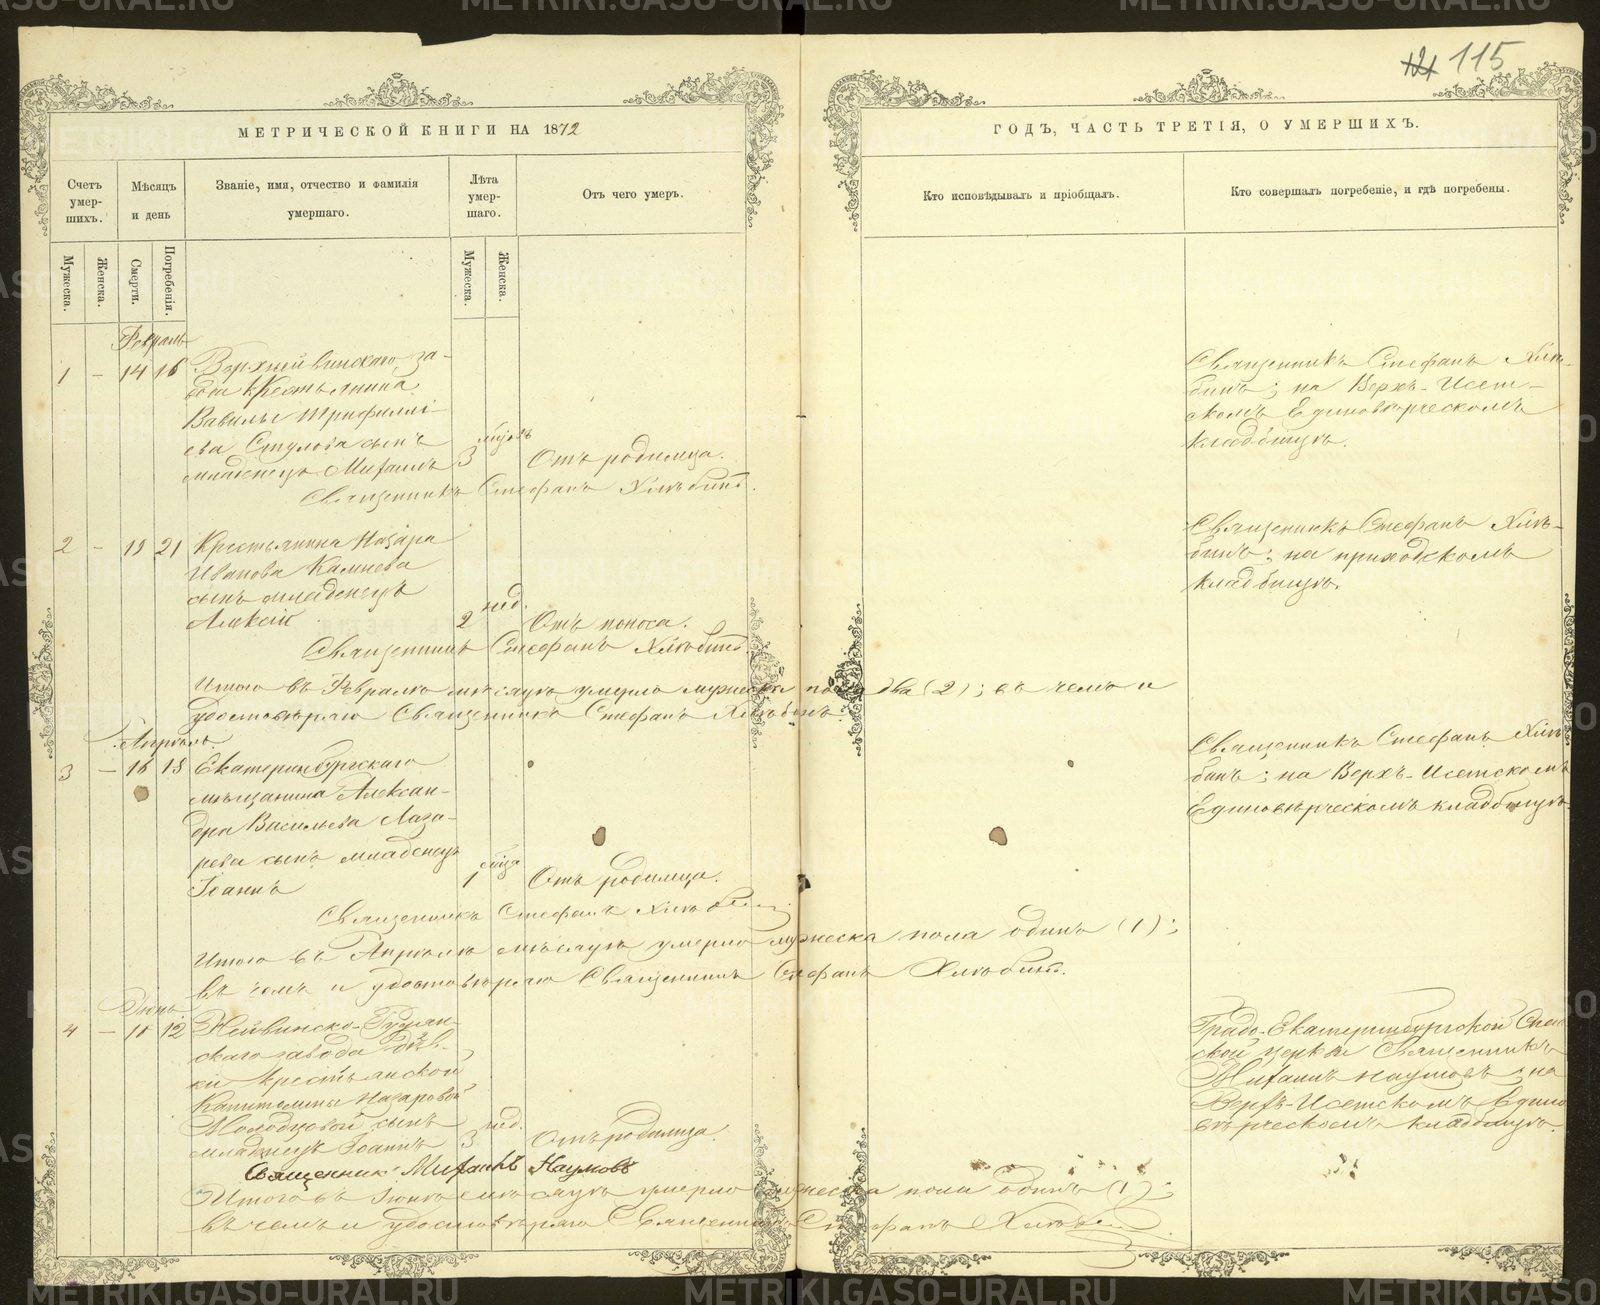 115
МЕТРИЧЕСКОЙ КНИГИ НА 1872
ГОДЪ, ЧАСТЬ ТРЕТІЯ, О УМЕРШИХЪ.
Счетъ умер-
шихъ.
Мѣсяцъ
и день
Званіе, имя, отчество и фамилія
умершаго.
Лѣта
умер-
шаго.
Отъ чего умеръ.
Кто исповѣдывалъ и пріобщалъ.
Кто совершалъ погребеніе, и гдѣ погребены.
Мужеска.
Женска.
Смерти.
Погребенія.
Мужеска.
Женска.
Февраль
1 – 14 16
Верхнейвинскаго за-
вода крестьянина
Вавилы Трифилье-
ева Стулова сынъ
младенецъ Михаилъ
3
Отъ родимца.
Священникъ Стефанъ Хлѣбинъ.
Священникъ Стефанъ Хлѣ-
бинъ; на Верхъ-Исет-
скомъ Единовѣрческомъ
кладбищѣ.
2 – 19 21
Крестьянина Назара
Иванова Камнева
сынъ младенецъ
Алексій
2 нед.
Отъ поноса.
Священникъ Стефанъ Хлѣбинъ.
Священникъ Стефанъ Хлѣ-
бинъ; на приходскомъ
кладбищѣ.
Итого въ Февралѣ мѣсяцѣ умерло мужеска пола два (2); въ чемъ и
удостовѣряю Священникъ Стефанъ Хлѣбинъ.
Апрѣль.
3 – 16 18
Екатеринбургскаго
мѣщанина Алексан-
дра Васильева Лаза-
рева сынъ младенецъ
Іоаннъ
1 мѣсяца
Отъ родимца.
Священникъ Стефанъ Хлѣбинъ.
Священникъ Стефанъ Хлѣ-
бинъ; на Верхъ-Исетскомъ
Единовѣрческомъ кладбищѣ.
Итого въ Апрѣлѣ мѣсяцѣ умерло мужеска пола одинъ (1);
въ чемъ и удостовѣряю Священникъ Стефанъ Хлѣбинъ.
Іюнь
4 – 12
Нейвинско-Рудян-
скаго завода дѣв-
ки крестьянской
Капитолины Назаровой
Молодцовой сынъ
младенецъ Іоаннъ
3 нед.
Отъ родимца.
Священникъ Михаилъ Наумовъ
Градо-Екатеринбургской Спас-
ской церкви Священникъ
Михаилъ Наумовъ; на
Верхъ-Исетскомъ Едино
вѣрческомъ кладбищѣ.
Итого въ Іюнѣ мѣсяцѣ умерло мужеска пола одинъ (1);
въ чемъ и удостовѣряю Священникъ Стефанъ Хлѣбинъ
METRIKI.GASO-URAL.RU